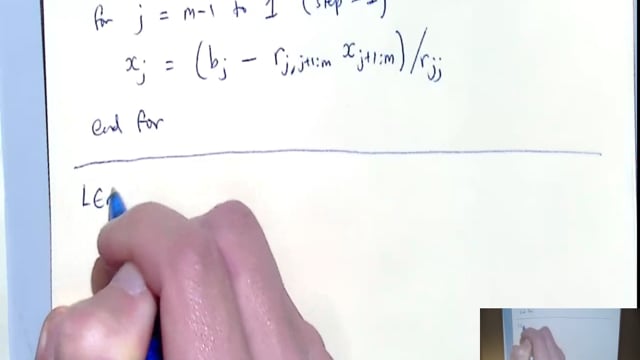 for j = m-1 to 1 (step -1)
x_j = (b_j - r_{j,j+1:m} x_{j+1:m}) / r_{jj}
end for
LE